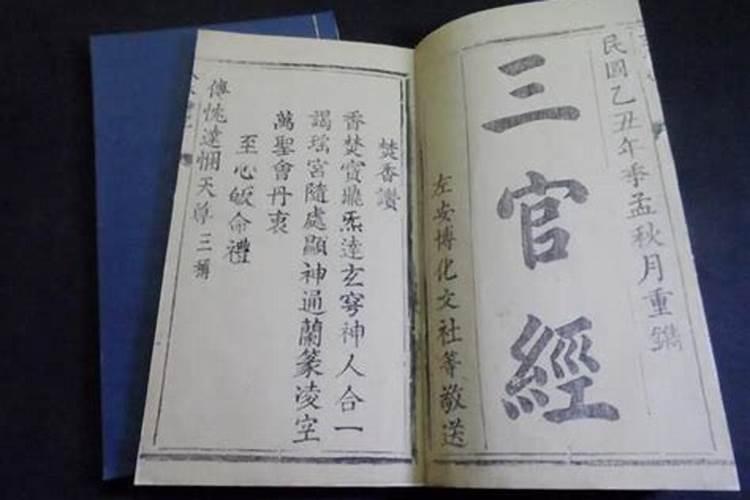 民國乙丑年季孟秋月重鐫
三官經
左安博化文社等敬送
焚香讚
香焚寶鼎炁達玄穹神人合一
謁瑶宮隨處顯神通蘭篆凌空
萬聖會丹衷
至心皈命禮
傳忱達悃天尊三稱